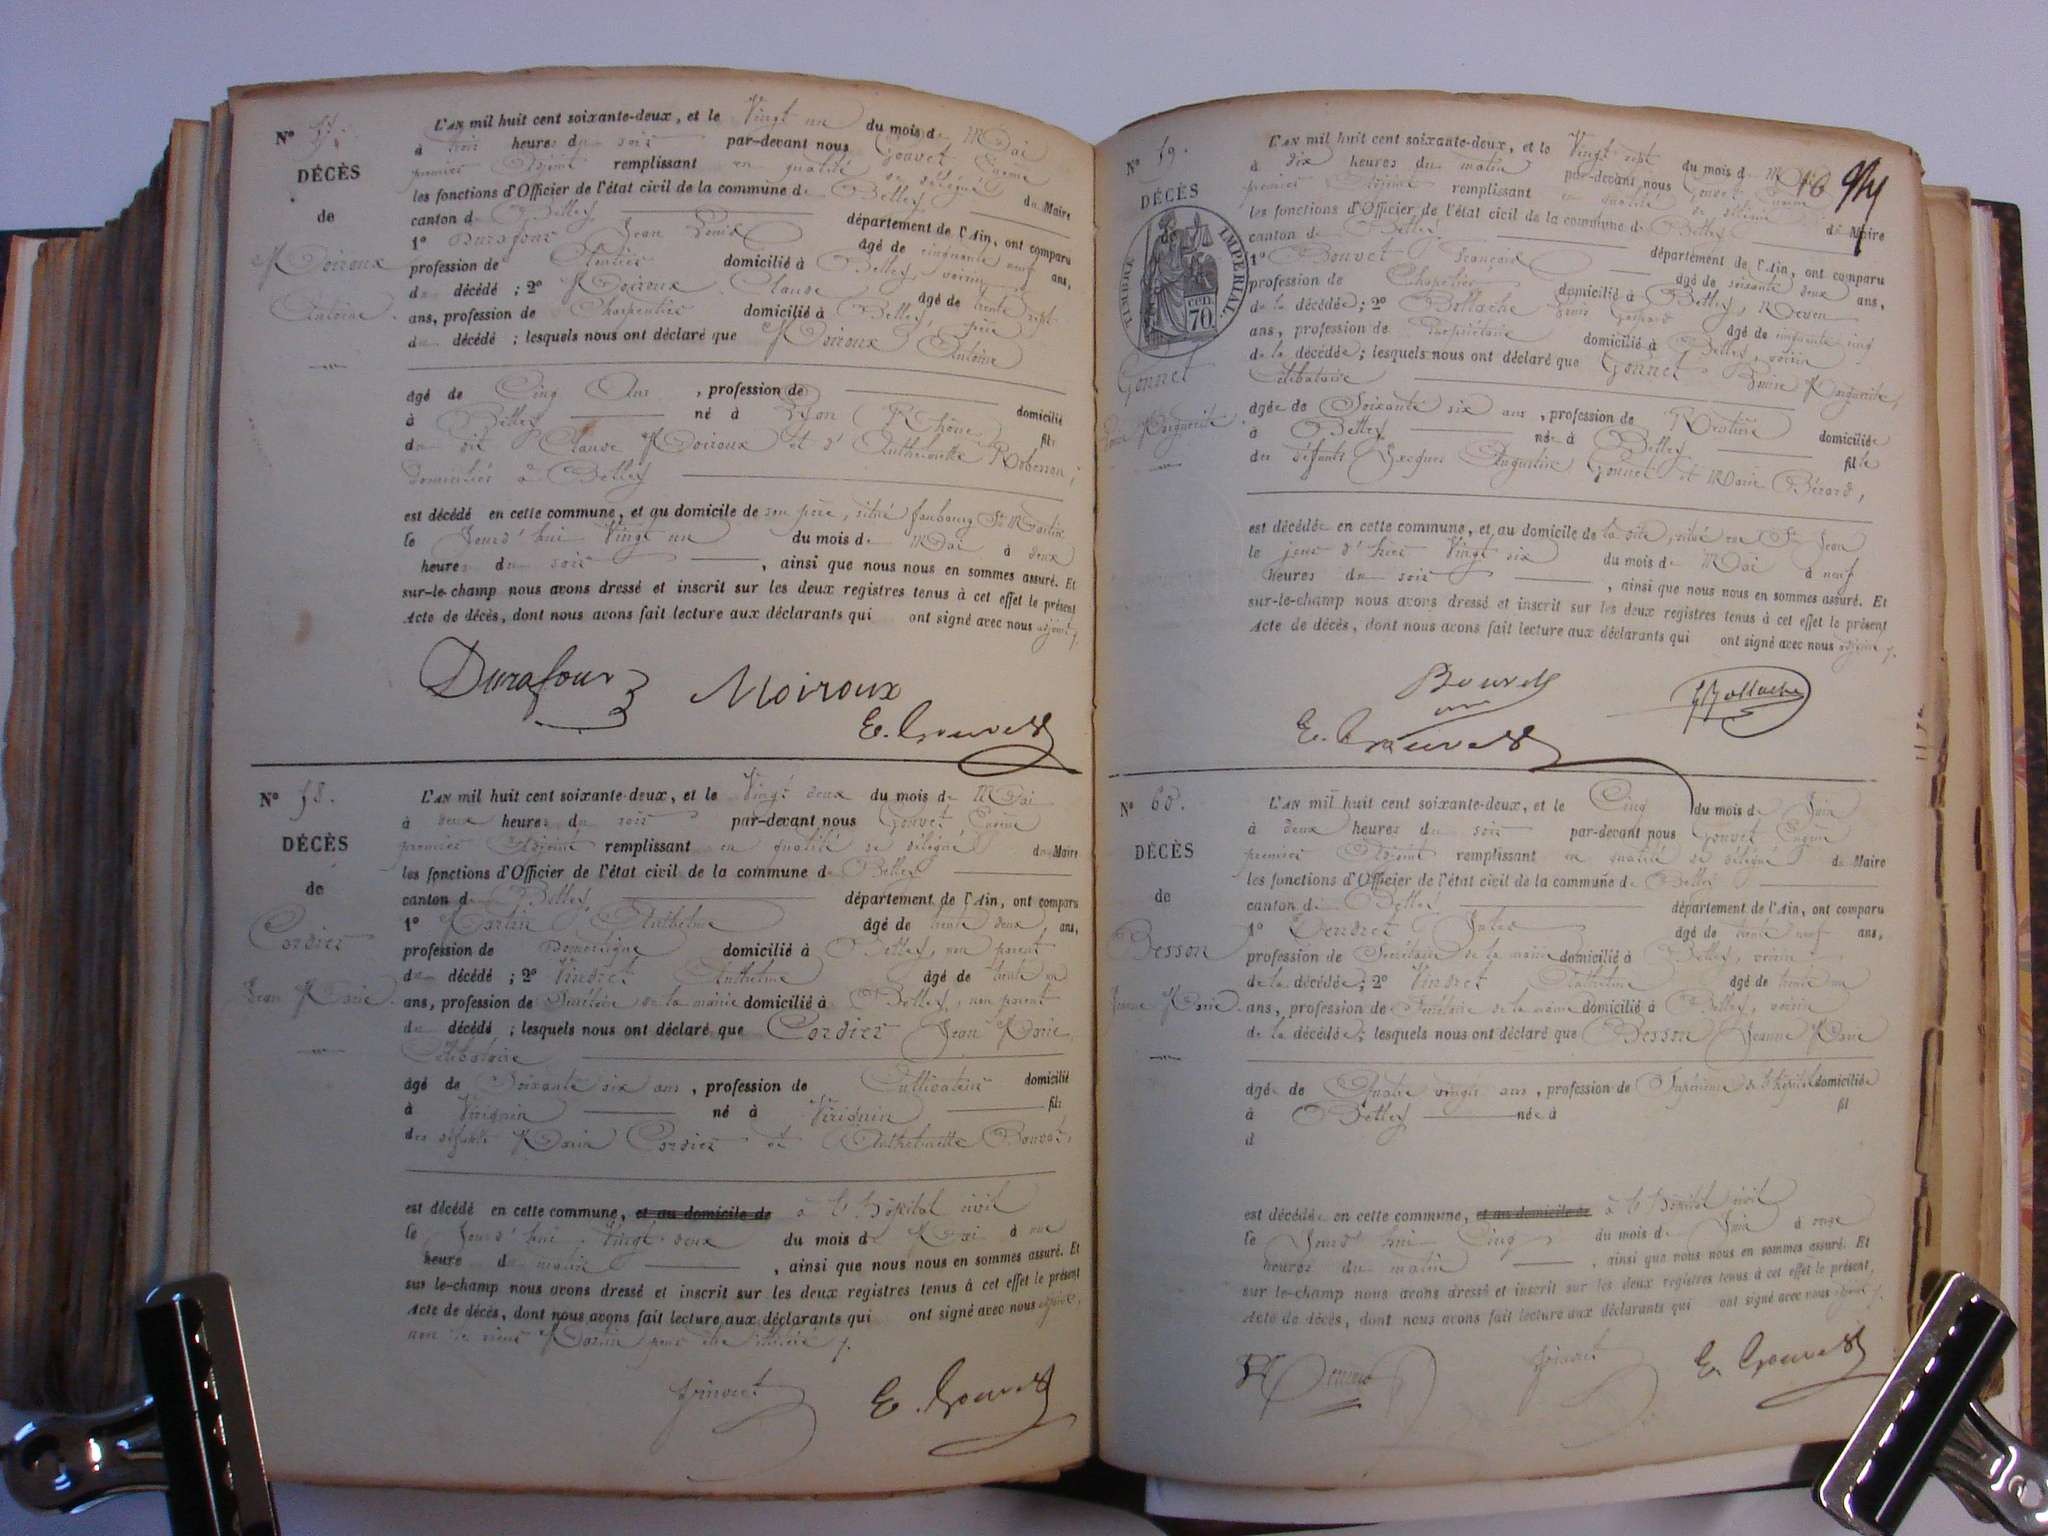 N° 57.
DÉCÈS
de
Moiroux
Antoine.
L'AN mil huit cent soixante-deux, et le Vingt un du mois de Mai
à trois heures du soir par-devant nous Gouvet Eugène
premier Adjoint remplissant en qualité de délégué du Maire
les fonctions d'Officier de l'état civil de la commune de Belley
canton de Belley département de l'Ain, ont comparu
1° Durafour Jean Louis âgé de cinquante neuf ans,
profession de domicilié à Belley, voisin
du décédé ; 2° Moiroux Claude âgé de trente sept
ans, profession de Charpentier domicilié à Belley, père
du décédé ; lesquels nous ont déclaré que Moiroux Antoine
âgé de Cinq Ans , profession de domicilié
à Belley né à Lyon (Rhône) fils
du dit Claude Moiroux et d'Anthelmette
domiciliés à Belley
est décédé en cette commune, et au domicile de son père, situé faubourg St Martin
le Jourd'hui Vingt un du mois de Mai à deux
heures du soir , ainsi que nous nous en sommes assuré. Et
sur-le-champ nous avons dressé et inscrit sur les deux registres tenus à cet effet le présent
Acte de décès, dont nous avons fait lecture aux déclarants qui ont signé avec nous adjoint
Durafour Moiroux
E. Gouvet
N° 58.
DÉCÈS
de
Cordier
Jean Marie.
L'AN mil huit cent soixante-deux, et le Vingt deux du mois de Mai
à deux heures du soir par-devant nous Gouvet Eugène
premier Adjoint remplissant en qualité de délégué du Maire
les fonctions d'Officier de l'état civil de la commune de Belley
canton de Belley département de l'Ain, ont comparu
1° Martin Anthelme âgé de trente deux ans,
profession de Domestique domicilié à Belley, non parent
du décédé ; 2° Vindret Anthelme âgé de trente un
ans, profession de Secrétaire de la mairie domicilié à Belley, non parent
du décédé ; lesquels nous ont déclaré que Cordier Jean Marie,
Célibataire
âgé de Soixante six ans, profession de Cultivateur domicilié
à Virignin né à Virignin fils
des défunts Marin Cordier et Anthelmette Bouvet,
est décédé en cette commune, et au domicile de à l'Hôpital civil
le Jourd'hui Vingt deux du mois de Mai à une
heure du matin , ainsi que nous nous en sommes assuré. Et
sur le-champ nous avons dressé et inscrit sur les deux registres tenus à cet effet le présent
Acte de décès, dont nous avons fait lecture aux déclarants qui ont signé avec nous adjoint,
non le sieur Martin pour être illitéré
Vindret E. Gouvet
N° 59.
DÉCÈS
de
TIMBRE IMPÉRIAL.
70 cen.
Gonnet
Louise Marguerite.
L'AN mil huit cent soixante-deux, et le Vingt sept du mois de Mai
à dix heures du matin par-devant nous Gouvet Eugène
premier Adjoint remplissant en qualité de délégué du Maire
les fonctions d'Officier de l'état civil de la commune de Belley
canton de Belley département de l'Ain, ont comparu
1° Bouvet François âgé de soixante deux ans,
profession de Chapelier domicilié à Belley, Neveu
de la décédée ; 2° Bollache Louis âgé de cinquante cinq
ans, profession de Propriétaire domicilié à Belley, voisin
de la décédée ; lesquels nous ont déclaré que Gonnet Louise Marguerite,
Célibataire
âgée de Soixante six ans , profession de Rentière domiciliée
à Belley née à Belley fille
des défunts Jacques Augustin Gonnet et Marie Bérard,
est décédée en cette commune, et au domicile de la dite, situé rue St Jean
le jour d'hier Vingt six du mois de Mai à neuf
heures du soir , ainsi que nous nous en sommes assuré. Et
sur-le-champ nous avons dressé et inscrit sur les deux registres tenus à cet effet le présent
Acte de décès, dont nous avons fait lecture aux déclarants qui ont signé avec nous adjoint
Bouvet Bollache
E. Gouvet
N° 60.
DÉCÈS
de
Besson
Jeanne Marie.
L'AN mil huit cent soixante-deux, et le Cinq du mois de Juin
à deux heures du soir par-devant nous Gouvet Eugène
premier Adjoint remplissant en qualité de délégué du Maire
les fonctions d'Officier de l'état civil de la commune de Belley
canton de Belley département de l'Ain, ont comparu
1° Jules âgé de trente neuf ans,
profession de Secrétaire de la mairie domicilié à Belley, voisin
de la décédée ; 2° Vindret Anthelme âgé de trente un
ans, profession de Secrétaire de la mairie domicilié à Belley, voisin
de la décédée ; lesquels nous ont déclaré que Besson Jeanne Marie
âgée de Quatre vingts ans , profession de Supérieure de l'hôpital domiciliée
à Belley née à fil
d
est décédée en cette commune, et au domicile de à l'Hôpital civil
le Jourd'hui Cinq du mois de Juin à onze
heures du matin , ainsi que nous nous en sommes assuré. Et
sur le-champ nous avons dressé et inscrit sur les deux registres tenus à cet effet le présent
Acte de décès, dont nous avons fait lecture aux déclarants qui ont signé avec nous adjoint
Vindret E. Gouvet